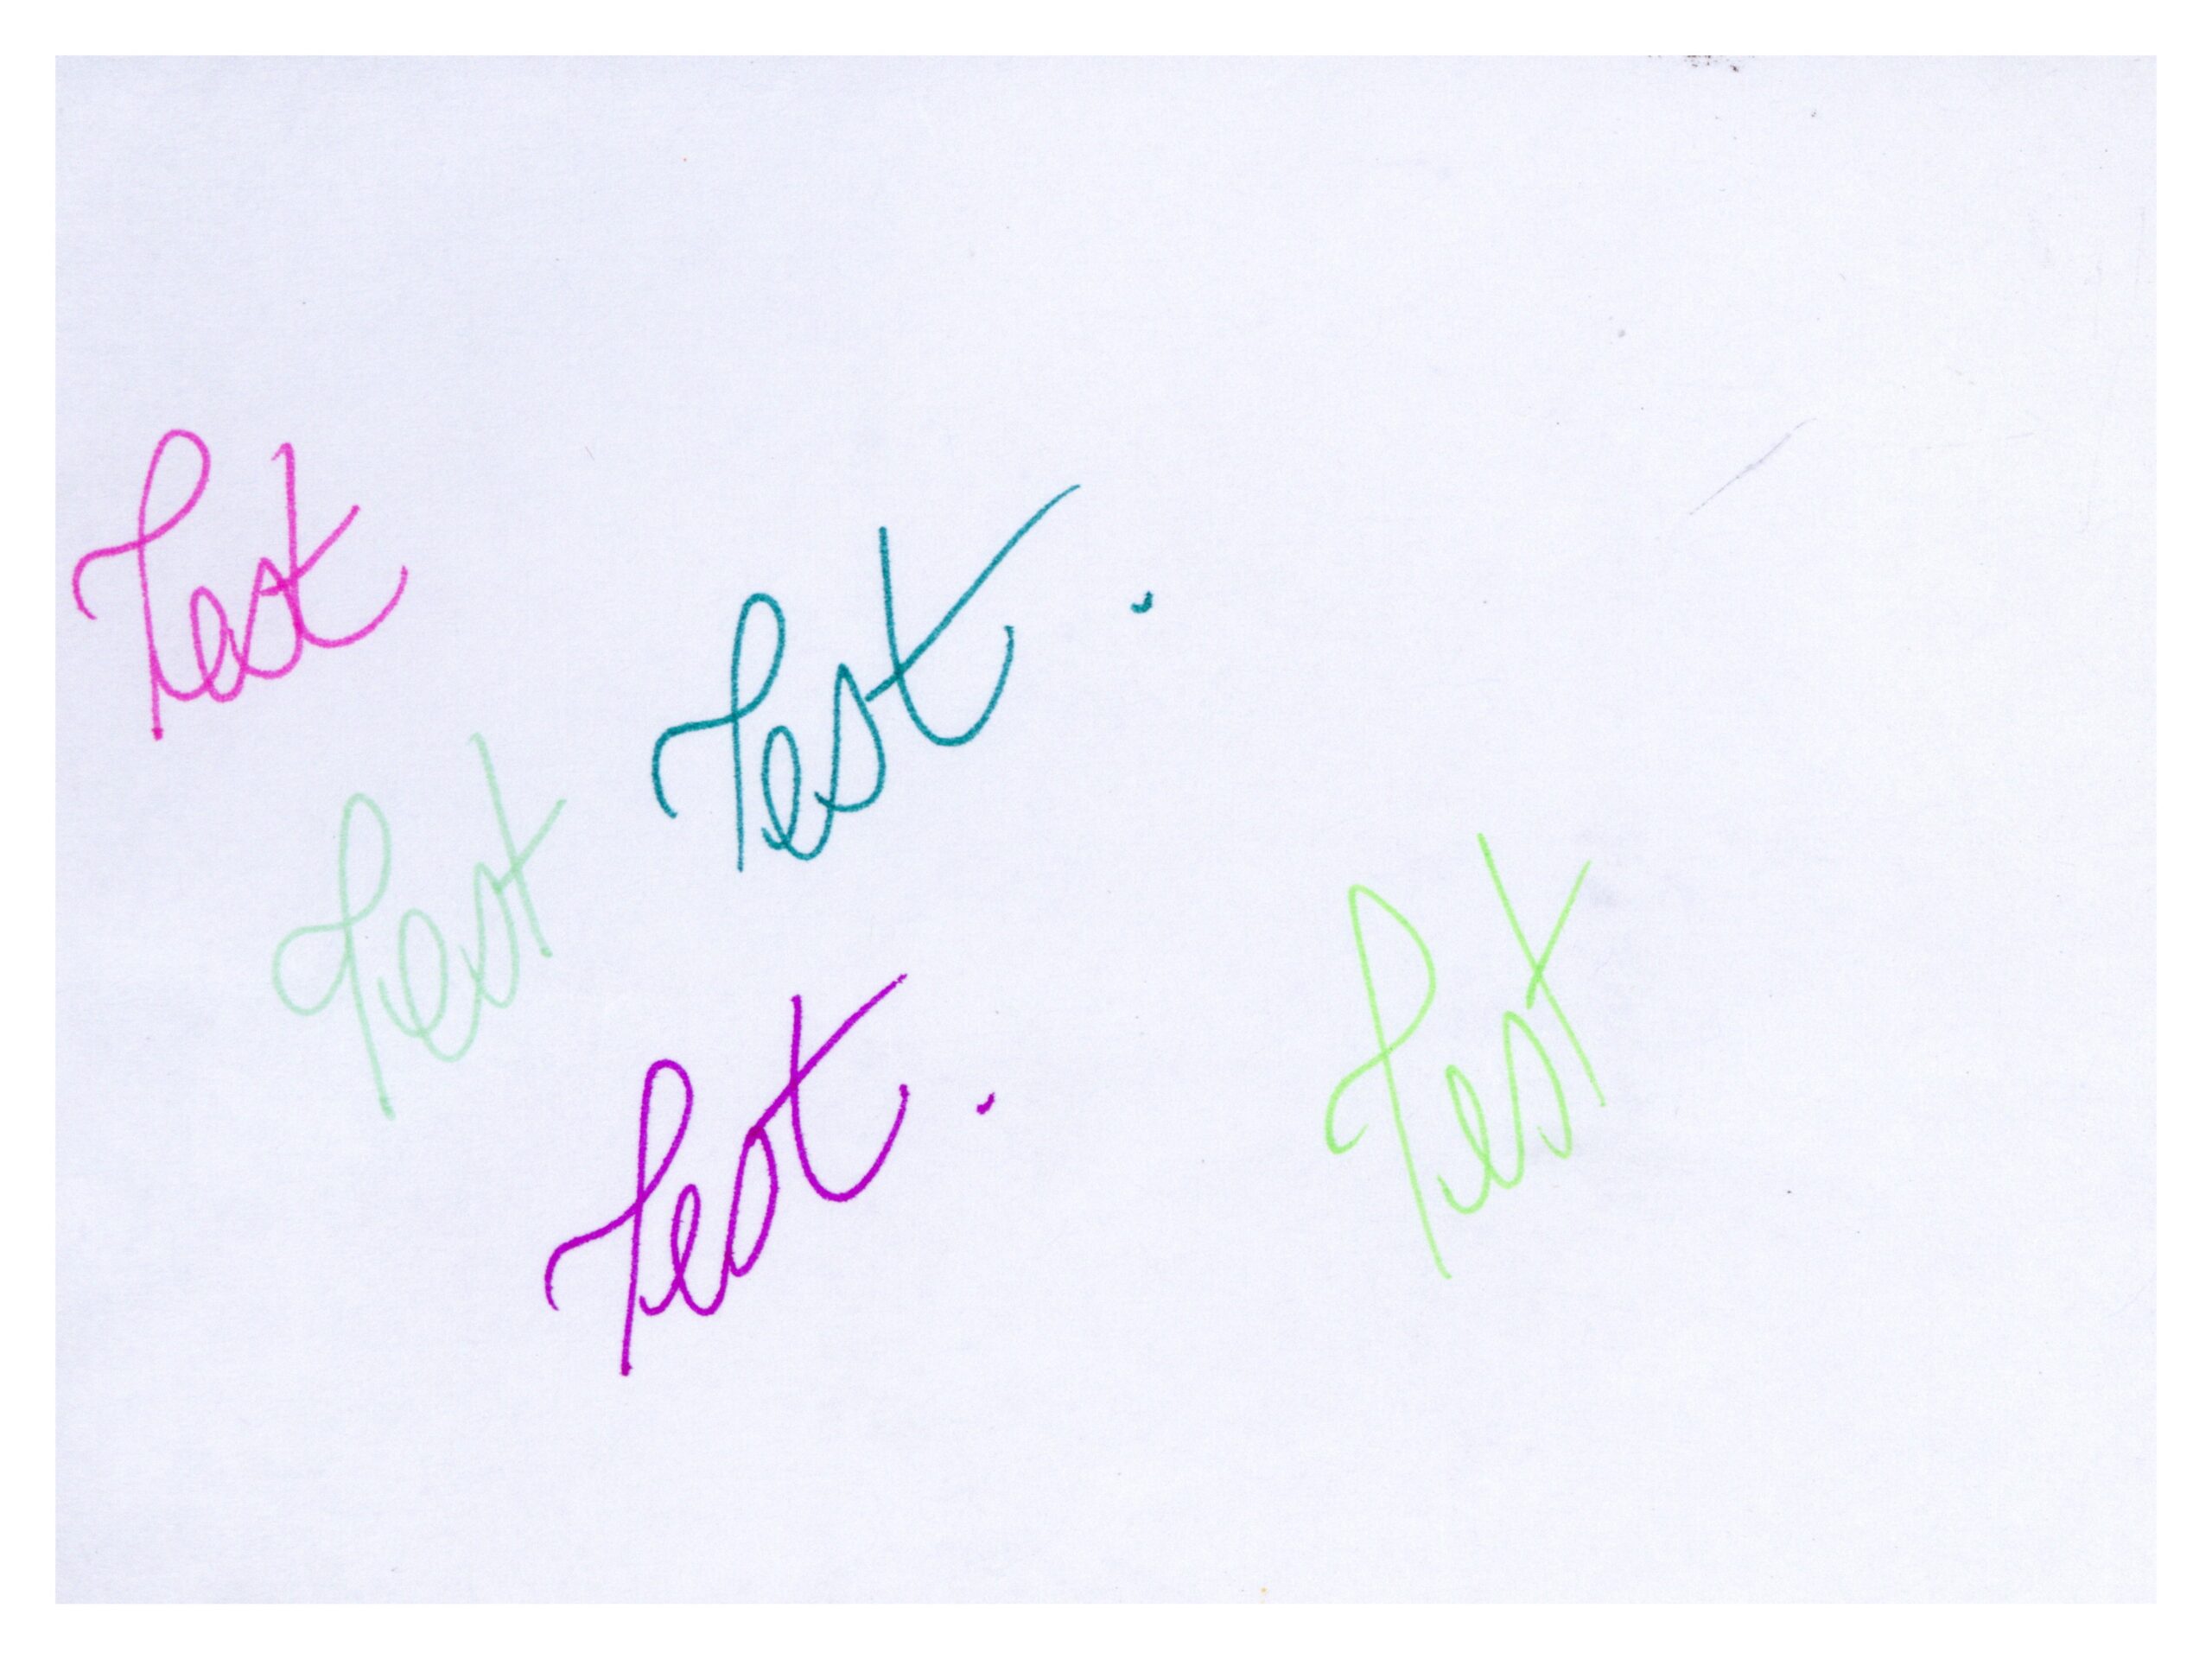 Test
Test.
Test
Test.
Test